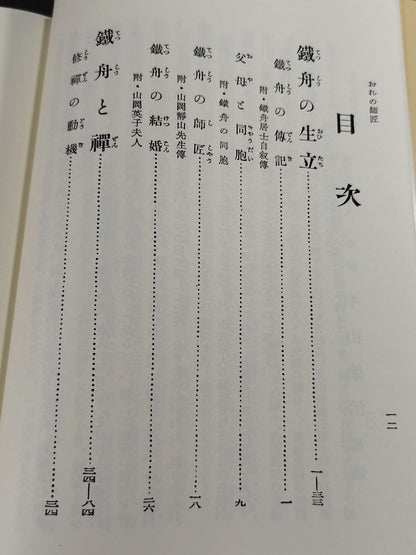 おれの師匠
目次
鐵舟の生立……一—三三
鐵舟の傳記……一
附・鐵舟居士自叙傳
父母と同胞……九
附・鐵舟の同胞
鐵舟の師匠……一八
附・山岡靜山先生傳
鐵舟の結婚……二六
附・山岡英子夫人
鐵舟と禪……三四—八四
修禪の動機……三四
一二